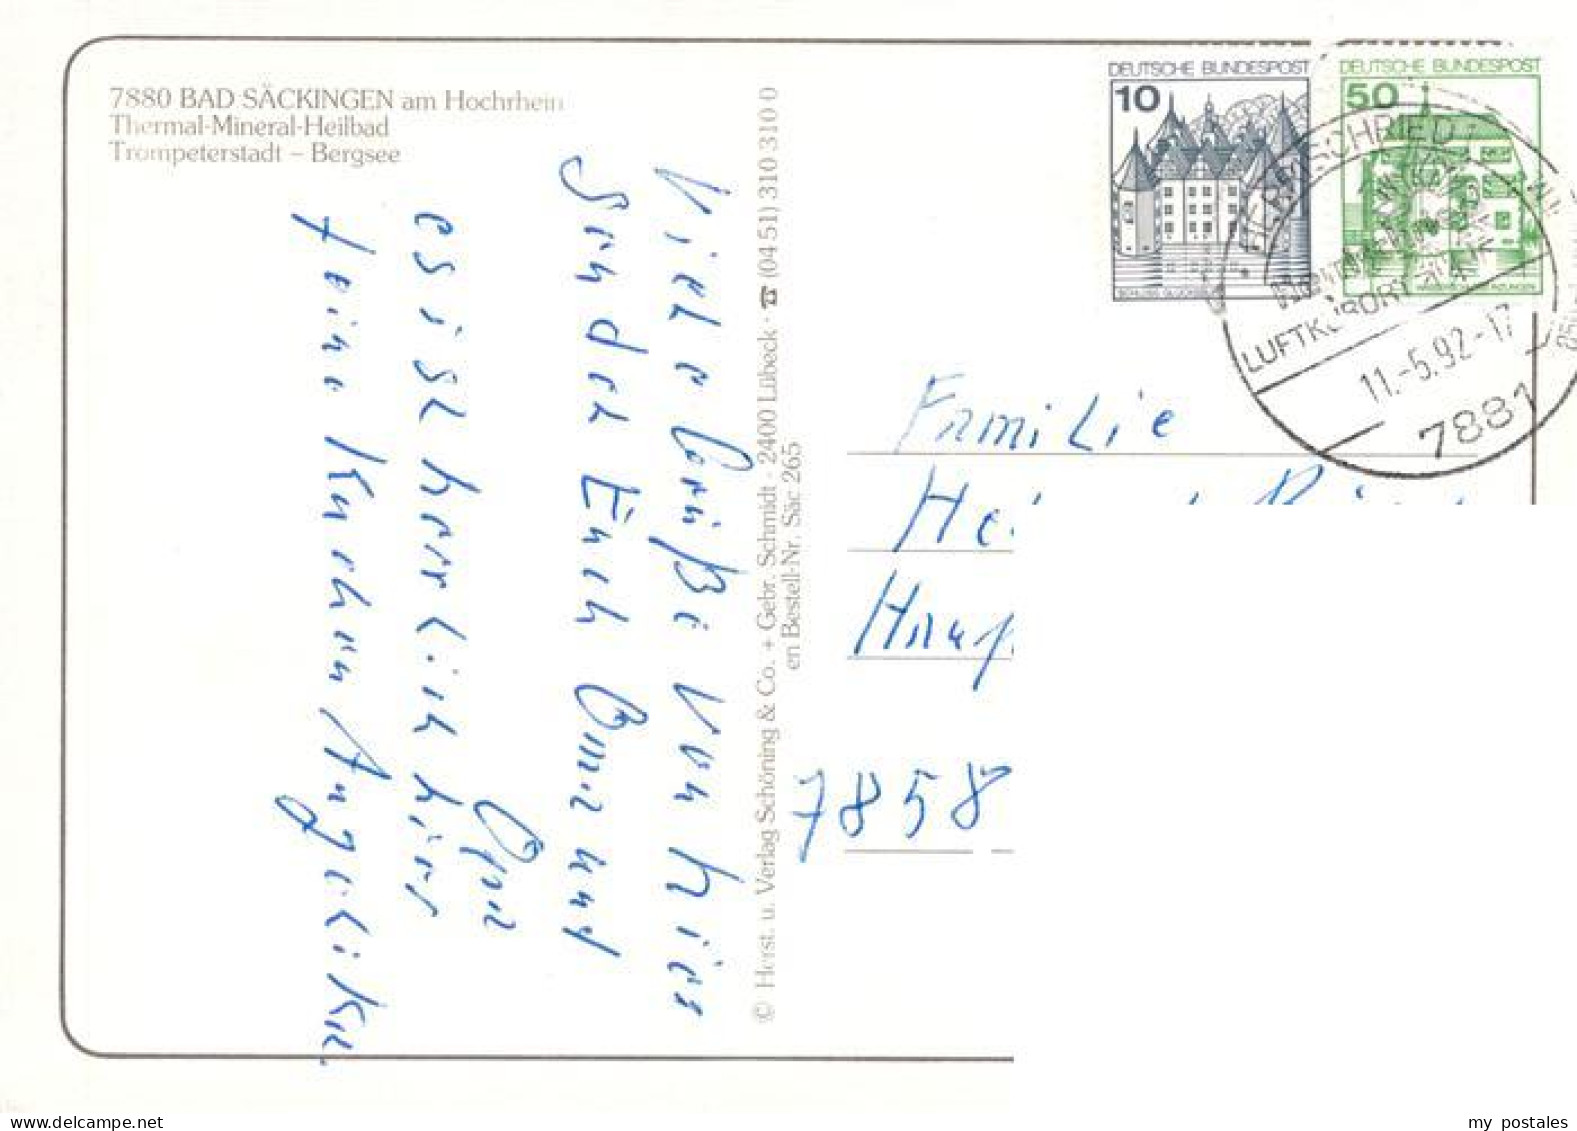 7880 BAD SÄCKINGEN am Hochrhein
Thermal-Mineral-Heilbad
Trompeterstadt – Bergsee
Viele Grüße von hier
sendet Euch Oma und
Opa
es ist herrlich hier
feine Kuchen Angelika.
© Herst. u. Verlag Schöning & Co. + Gebr. Schmidt · 2400 Lübeck · ☎ (04 51) 310 310 0
en Bestell-Nr. Säc 265
DEUTSCHE BUNDESPOST
10
SCHLOSS GLÜCKSBURG
DEUTSCHE BUNDESPOST
50
LUFTKURORT
11.-5.92-17
7881
Familie
7858
my postales